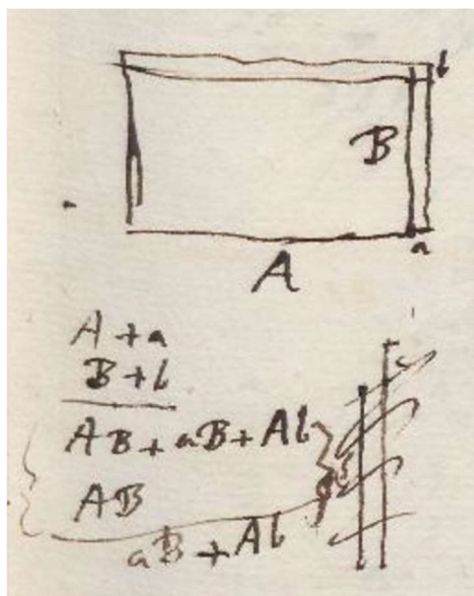 b
B
a
A
A + a
B + b
AB + aB + Ab
AB
aB + Ab